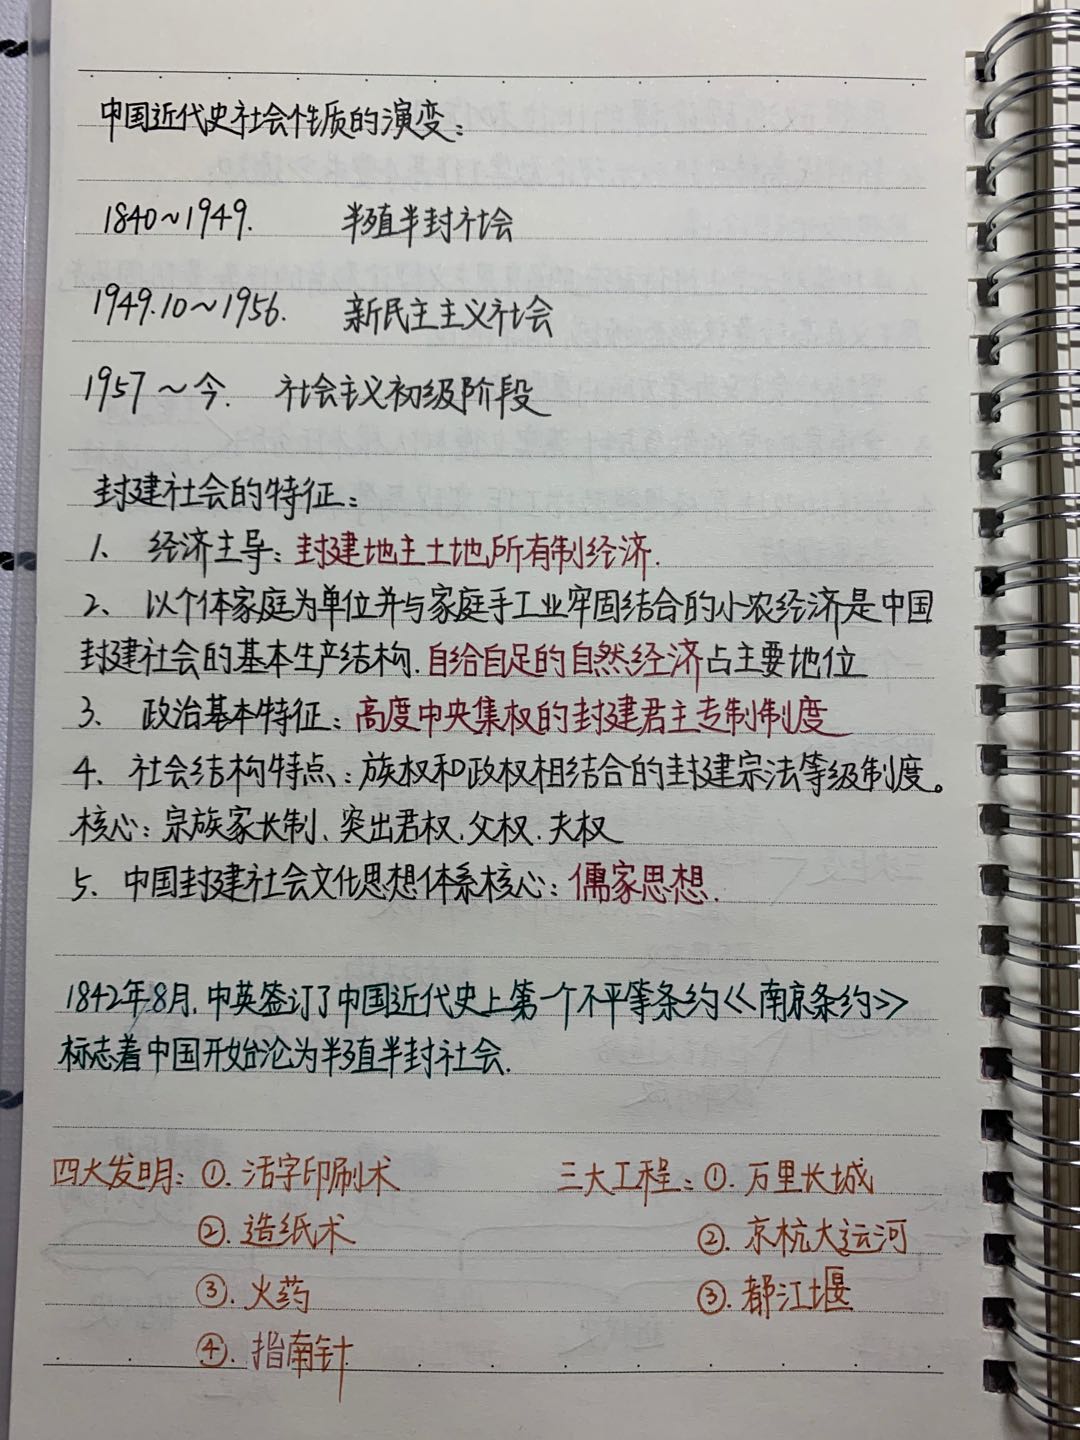 中国近代史社会性质的演变：
1840~1949. 半殖半封社会
1949.10~1956. 新民主主义社会
1957~今. 社会主义初级阶段
封建社会的特征：
1、经济主导：封建地主土地所有制经济.
2、以个体家庭为单位并与家庭手工业牢固结合的小农经济是中国
封建社会的基本生产结构.自给自足的自然经济占主要地位
3、政治基本特征：高度中央集权的封建君主专制制度
4、社会结构特点：族权和政权相结合的封建宗法等级制度。
核心：宗族家长制、突出君权.父权.夫权
5、中国封建社会文化思想体系核心：儒家思想.
1842年8月.中英签订了中国近代史上第一个不平等条约《南京条约》
标志着中国开始沦为半殖半封社会.
四大发明：①.活字印刷术 三大工程：①.万里长城
②.造纸术 ②.京杭大运河
③.火药 ③.都江堰
④.指南针